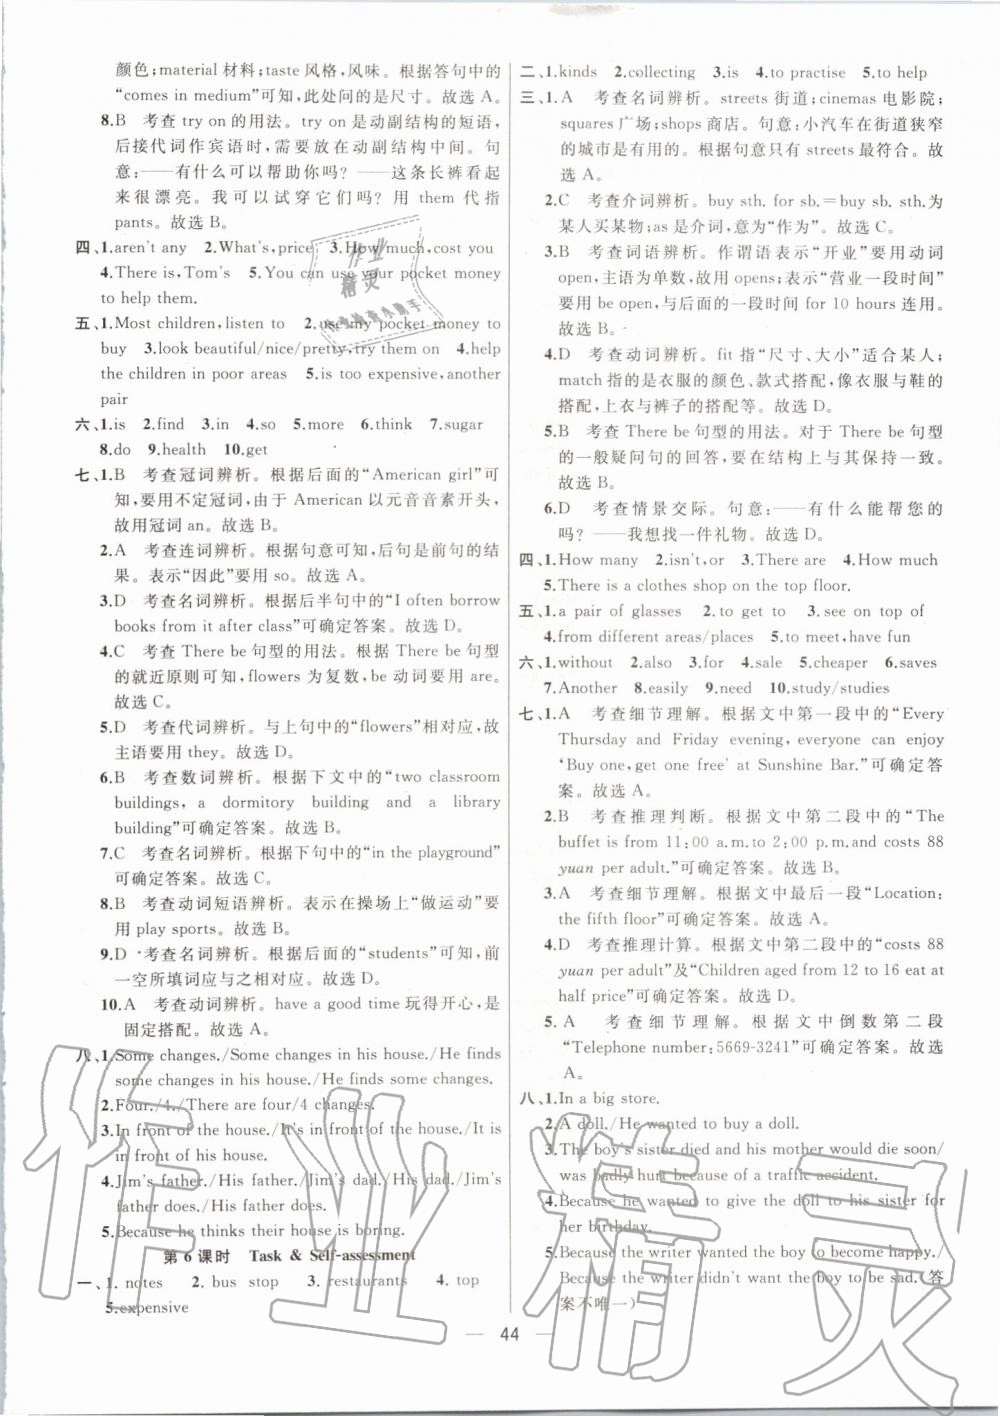 颜色;material 材料;taste 风格,风味。根据答句中的
“comes in medium”可知,此处问的是尺寸。故选 A。
8.B　考查 try on 的用法。try on 是动副结构的短语,
后接代词作宾语时,需要放在动副结构中间。句
意:——有什么可以帮助你吗? ——这条长裤看起
来很漂亮。我可以试穿它们吗? 用 them 代指
pants。故选 B。
四、1.aren't any　2.What's,price　3.How much,cost you
4.There is,Tom's　5.You can use your pocket money
to help them.
五、1.Most children,listen to　2.use my pocket money to
buy　3.look beautiful/nice/pretty,try them on　4.help
the children in poor areas　5.is too expensive,another
pair
六、1.is　2.find　3.in　4.so　5.more　6.think　7.sugar
8.do　9.health　10.get
七、1.B　考查冠词辨析。根据后面的“American girl”可
知,要用不定冠词,由于 American 以元音音素开头,
故用冠词 an。故选 B。
2.A　考查连词辨析。根据句意可知,后句是前句的结
果。表示“因此”要用 so。故选 A。
3.D　考查名词辨析。根据后半句中的“I often borrow
books from it after class”可确定答案。故选 D。
4.C　考查 There be 句型的用法。根据 There be 句型
的就近原则可知,flowers 为复数,be 动词要用 are。
故选 C。
5.D　考查代词辨析。与上句中的“flowers”相对应,故
主语要用 they。故选 D。
6.B　考查数词辨析。根据下文中的“two classroom
buildings, a dormitory building and a library
building”可确定答案。故选 B。
7.C　考查名词辨析。根据下句中的“in the playground”
可确定答案。故选 C。
8.B　考查动词短语辨析。表示在操场上“做运动”要
用 play sports。故选 B。
9.D　考查名词辨析。根据后面的“students”可知,前
一空所填词应与之相对应。故选 D。
10.A　考查动词辨析。have a good time 玩得开心,是
固定搭配。故选 A。
八、1.Some changes./Some changes in his house./He finds
some changes in his house./He finds some changes.
2.Four./4./There are four/4 changes.
3.In front of the house./It's in front of the house./It is
in front of his house.
4.Jim's father./His father./Jim's dad./His dad./Jim's
father does./His father does.
5.Because he thinks their house is boring.
第 6 课时　Task & Self-assessment
一、1. notes　2. bus stop　3. restaurants　4. top
5.expensive
二、1.kinds　2.collecting　3.is　4.to practise　5.to help
三、1.A　考查名词辨析。streets 街道;cinemas 电影院;
squares 广场;shops 商店。句意:小汽车在街道狭窄
的城市是有用的。根据句意只有 streets 最符合。故
选 A。
2.C　考查介词辨析。buy sth. for sb.=buy sb. sth.为
某人买某物;as 是介词,意为“作为”。故选 C。
3.B　考查词语辨析。作谓语表示“开业”要用动词
open,主语为单数,故用 opens;表示“营业一段时间”
要用 be open,与后面的一段时间 for 10 hours 连用。
故选 B。
4.D　考查动词辨析。fit 指“尺寸、大小”适合某人;
match 指的是衣服的颜色、款式搭配,像衣服与鞋的
搭配,上衣与裤子的搭配等。故选 D。
5.B　考查 There be 句型的用法。对于 There be 句型
的一般疑问句的回答,要在结构上与其保持一致。
故选 B。
6.D　考查情景交际。句意:——有什么能帮您的
吗? ——我想找一件礼物。故选 D。
四、1.How many　2.isn't,or　3.There are　4.How much
5.There is a clothes shop on the top floor.
五、1.a pair of glasses　2.to get to　3.see on top of
4.from different areas/places　5.to meet,have fun
六、1.without　2.also　3.for　4.sale　5.cheaper　6.saves
7.Another　8.easily　9.need　10.study/studies
七、1.A　考查细节理解。根据文中第一段中的“Every
Thursday and Friday evening, everyone can enjoy
‘Buy one,get one free’ at Sunshine Bar.”可确定答
案。故选 A。
2.B　考查推理判断。根据文中第二段中的“The
buffet is from 11:00 a.m.to 2:00 p.m.and costs 88
yuan per adult.”可确定答案。故选 B。
3.A　考查细节理解。根据文中最后一段“Location:
the fifth floor”可确定答案。故选 A。
4.D　考查推理计算。根据文中第二段中的“costs 88
yuan per adult”及“Children aged from 12 to 16 eat at
half price”可确定答案。故选 D。
5.A　考查细节理解。根据文中倒数第二段
“Telephone number:5669-3241”可确定答案。故选
A。
八、1.In a big store.
2.A doll./He wanted to buy a doll.
3.The boy's sister died and his mother would die soon/
was badly hurt because of a traffic accident.
4.Because he wanted to give the doll to his sister for
her birthday.
5.Because the writer wanted the boy to become happy./
Because the writer didn't want the boy to be sad.(答
案不唯一)
— 44 —
作业精灵